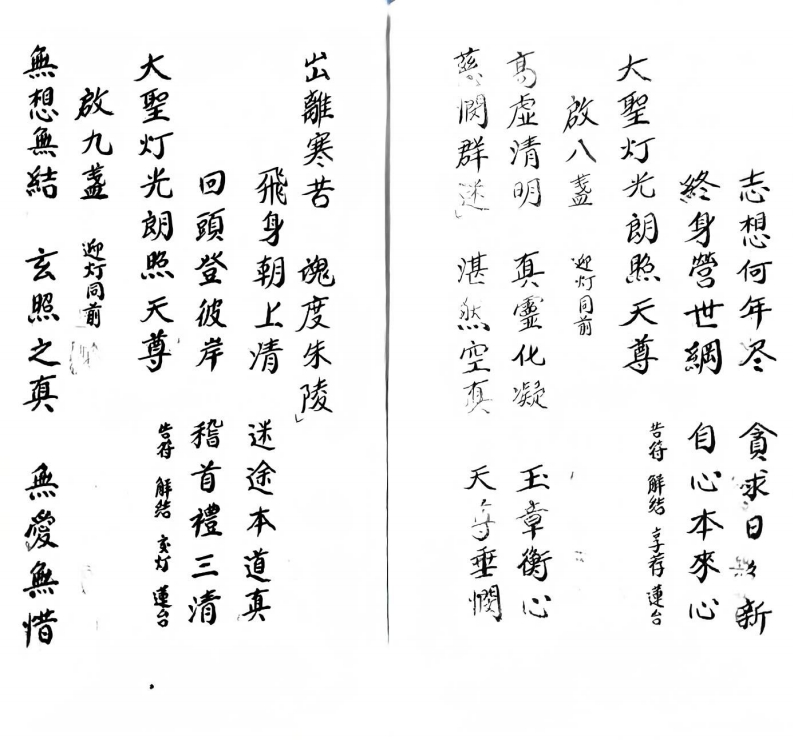 志想何年尽 貪求日々新
終身營世綱 自心本來心
大聖灯光朗照天尊 告符 解結 享荐 蓮台
啟八盞 迎灯同前
高虛清明 真靈化凝 玉章衡心
慈憫群迷」 湛然空真 天尊垂憫
出離寒苦 魂度朱陵」
飛身朝上清 迷途本道真
回頭登彼岸 稽首禮三清
大聖灯光朗照天尊 告符 解結 交灯 蓮台
啟九盞 迎灯同前
無想無結 玄照之真 無愛無惜